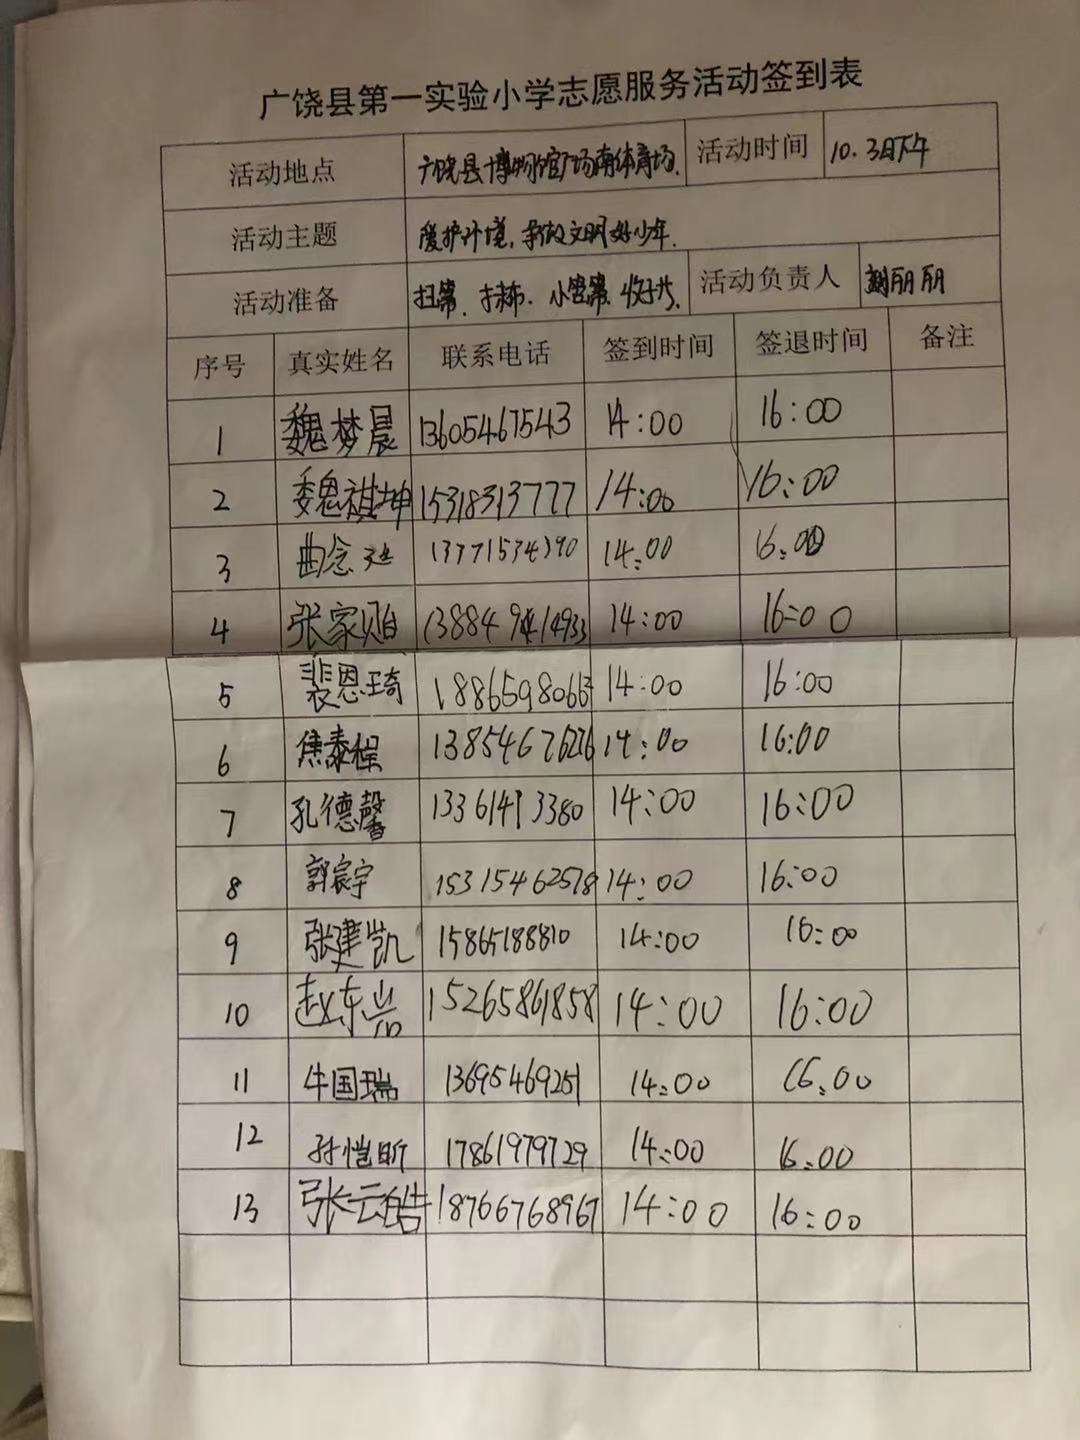 广饶县第一实验小学志愿服务活动签到表
活动地点 广饶县博物馆广场南体育场. 活动时间 10.3日下午
活动主题 爱护环境,争做文明好少年.
活动准备 扫帚、抹布、小笤帚、 活动负责人 刘丽丽
序号 真实姓名 联系电话 签到时间 签退时间 备注
1 魏梦晨 13605467543 14:00 16:00
2 魏祺坤 15318313777 14:00 16:00
3 曲念 14:00 16:00
4 张家贻 14:00 16:00
5 裴恩琦 14:00 16:00
6 焦泰程 13854676276 14:00 16:00
7 孔德馨 13361493380 14:00 16:00
8 郭宸宇 15315462578 14:00 16:00
9 张建凯 15865188810 14:00 16:00
10 赵东岩 15265861858 14:00 16:00
11 牛国瑞 13695469251 14:00 16:00
12 孙恺昕 17861979729 14:00 16:00
13 张云皓 18766768967 14:00 16:00